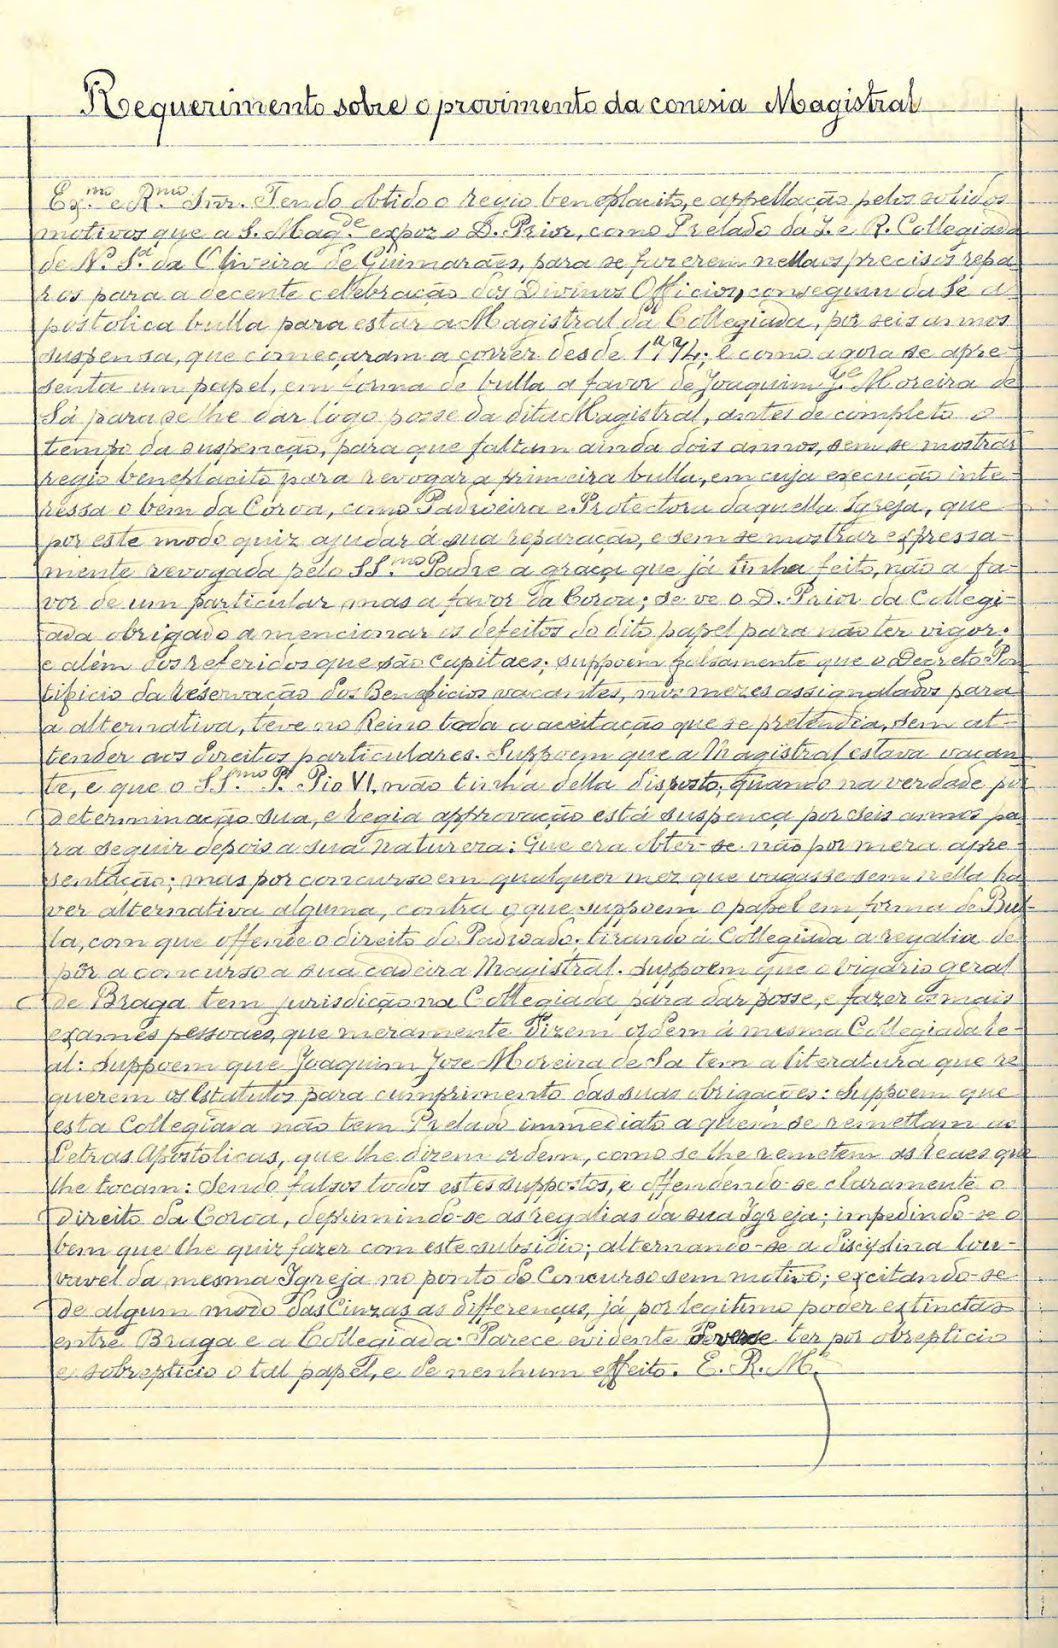 Requerimento sobre o provimento da conesia Magistral
Ex.mo e R.mo Snr. Tendo obtido o regio beneplacito, e appellação pelos solidos
motivos que a S. Mag.de expoz o D. Prior, como Prelado da I. e R. Collegiada
de N.ª S.ª da Oliveira de Guimarães, para se fazerem nella os precisos repa-
ros para a decente celebração dos Divinos Officios, conseguiu da Sé A-
postolica bulla para estar a Magistral da Collegiada, por seis annos
suspensa, que começaram a correr desde 1774; e como agora se apre-
senta um papel, em forma de bulla a favor de Joaquim J.e Moreira de
Sá para se lhe dar logo posse da dita Magistral, antes de completo o
tempo da suspenção, para que faltam ainda dois annos, sem se mostrar
regio beneplacito para revogar a primeira bulla, em cuja execução inte-
ressa o bem da Coroa, como Padroeira e Protectora daquella Igreja, que
por este modo quiz ajudar á sua reparação, e sem se mostrar expressa-
mente revogada pelo SS.mo Padre a graça que já tinha feito, não a fa-
vor de um particular, mas a favor da Coroa; se ve o D. Prior da Collegi-
ada obrigado a mencionar os defeitos do dito papel para não ter vigor;
e além dos referidos que são capitaes; suppoem falsamente que o Decreto Pon-
tificio da reservação dos Beneficios vacantes, nos mezes assignalados para
a alternativa, teve no Reino toda a aceitação que se pretendia, sem at-
tender aos direitos particulares. Suppoem que a Magistral estava vacan-
te, e que o SS.mo P.e Pio VI, não tinha della disposto; quando na verdade por
determinação sua, e regia approvação está suspença por seis annos pa-
ra seguir depois a sua natureza: Que era obter-se não por mera apre-
sentação; mas por concurso em qualquer mez que vagasse sem nella ha-
ver alternativa alguma, contra o que suppoem o papel em forma de Bul-
la, com que offende o direito do Padroado; tirando á Collegiada a regalia de
pôr a concurso a sua cadeira Magistral. Suppoem que o vigario geral
de Braga tem jurisdição na Collegiada para dar posse, e fazer os mais
exames pessoaes, que meramente dizem ordem á mesma Collegiada Re-
al: Suppoem que Joaquim Jose Moreira de Sa tem a literatura que re-
querem os Estatutos para cumprimento das suas obrigações: Suppoem que
esta Collegiada não tem Prelado immediato a quem se remettam as
Letras Apostolicas, que lhe dizem ordem, como se lhe remetem as Reaes que
lhe tocam: Sendo falsos todos estes suppostos, e offendendo-se claramente o
Direito da Coroa, deprimindo-se as regalias da sua Igreja; impedindo-se o
bem que lhe quiz fazer com este subsidio; alternando-se a disciplina lou-
vavel da mesma Igreja no ponto do Concurso sem motivo; excitando-se
de algum modo das Cinzas as differenças, já por legitimo poder extinctas
entre Braga e a Collegiada. Parece evidente ter por obrepticio
e sobrepticio o tal papel, e de nenhum effeito. E. R. M.